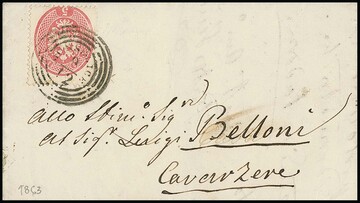 5
Allo Stim.o Sigr
al Sigr. Luigi Belloni
Cavarzere
1863